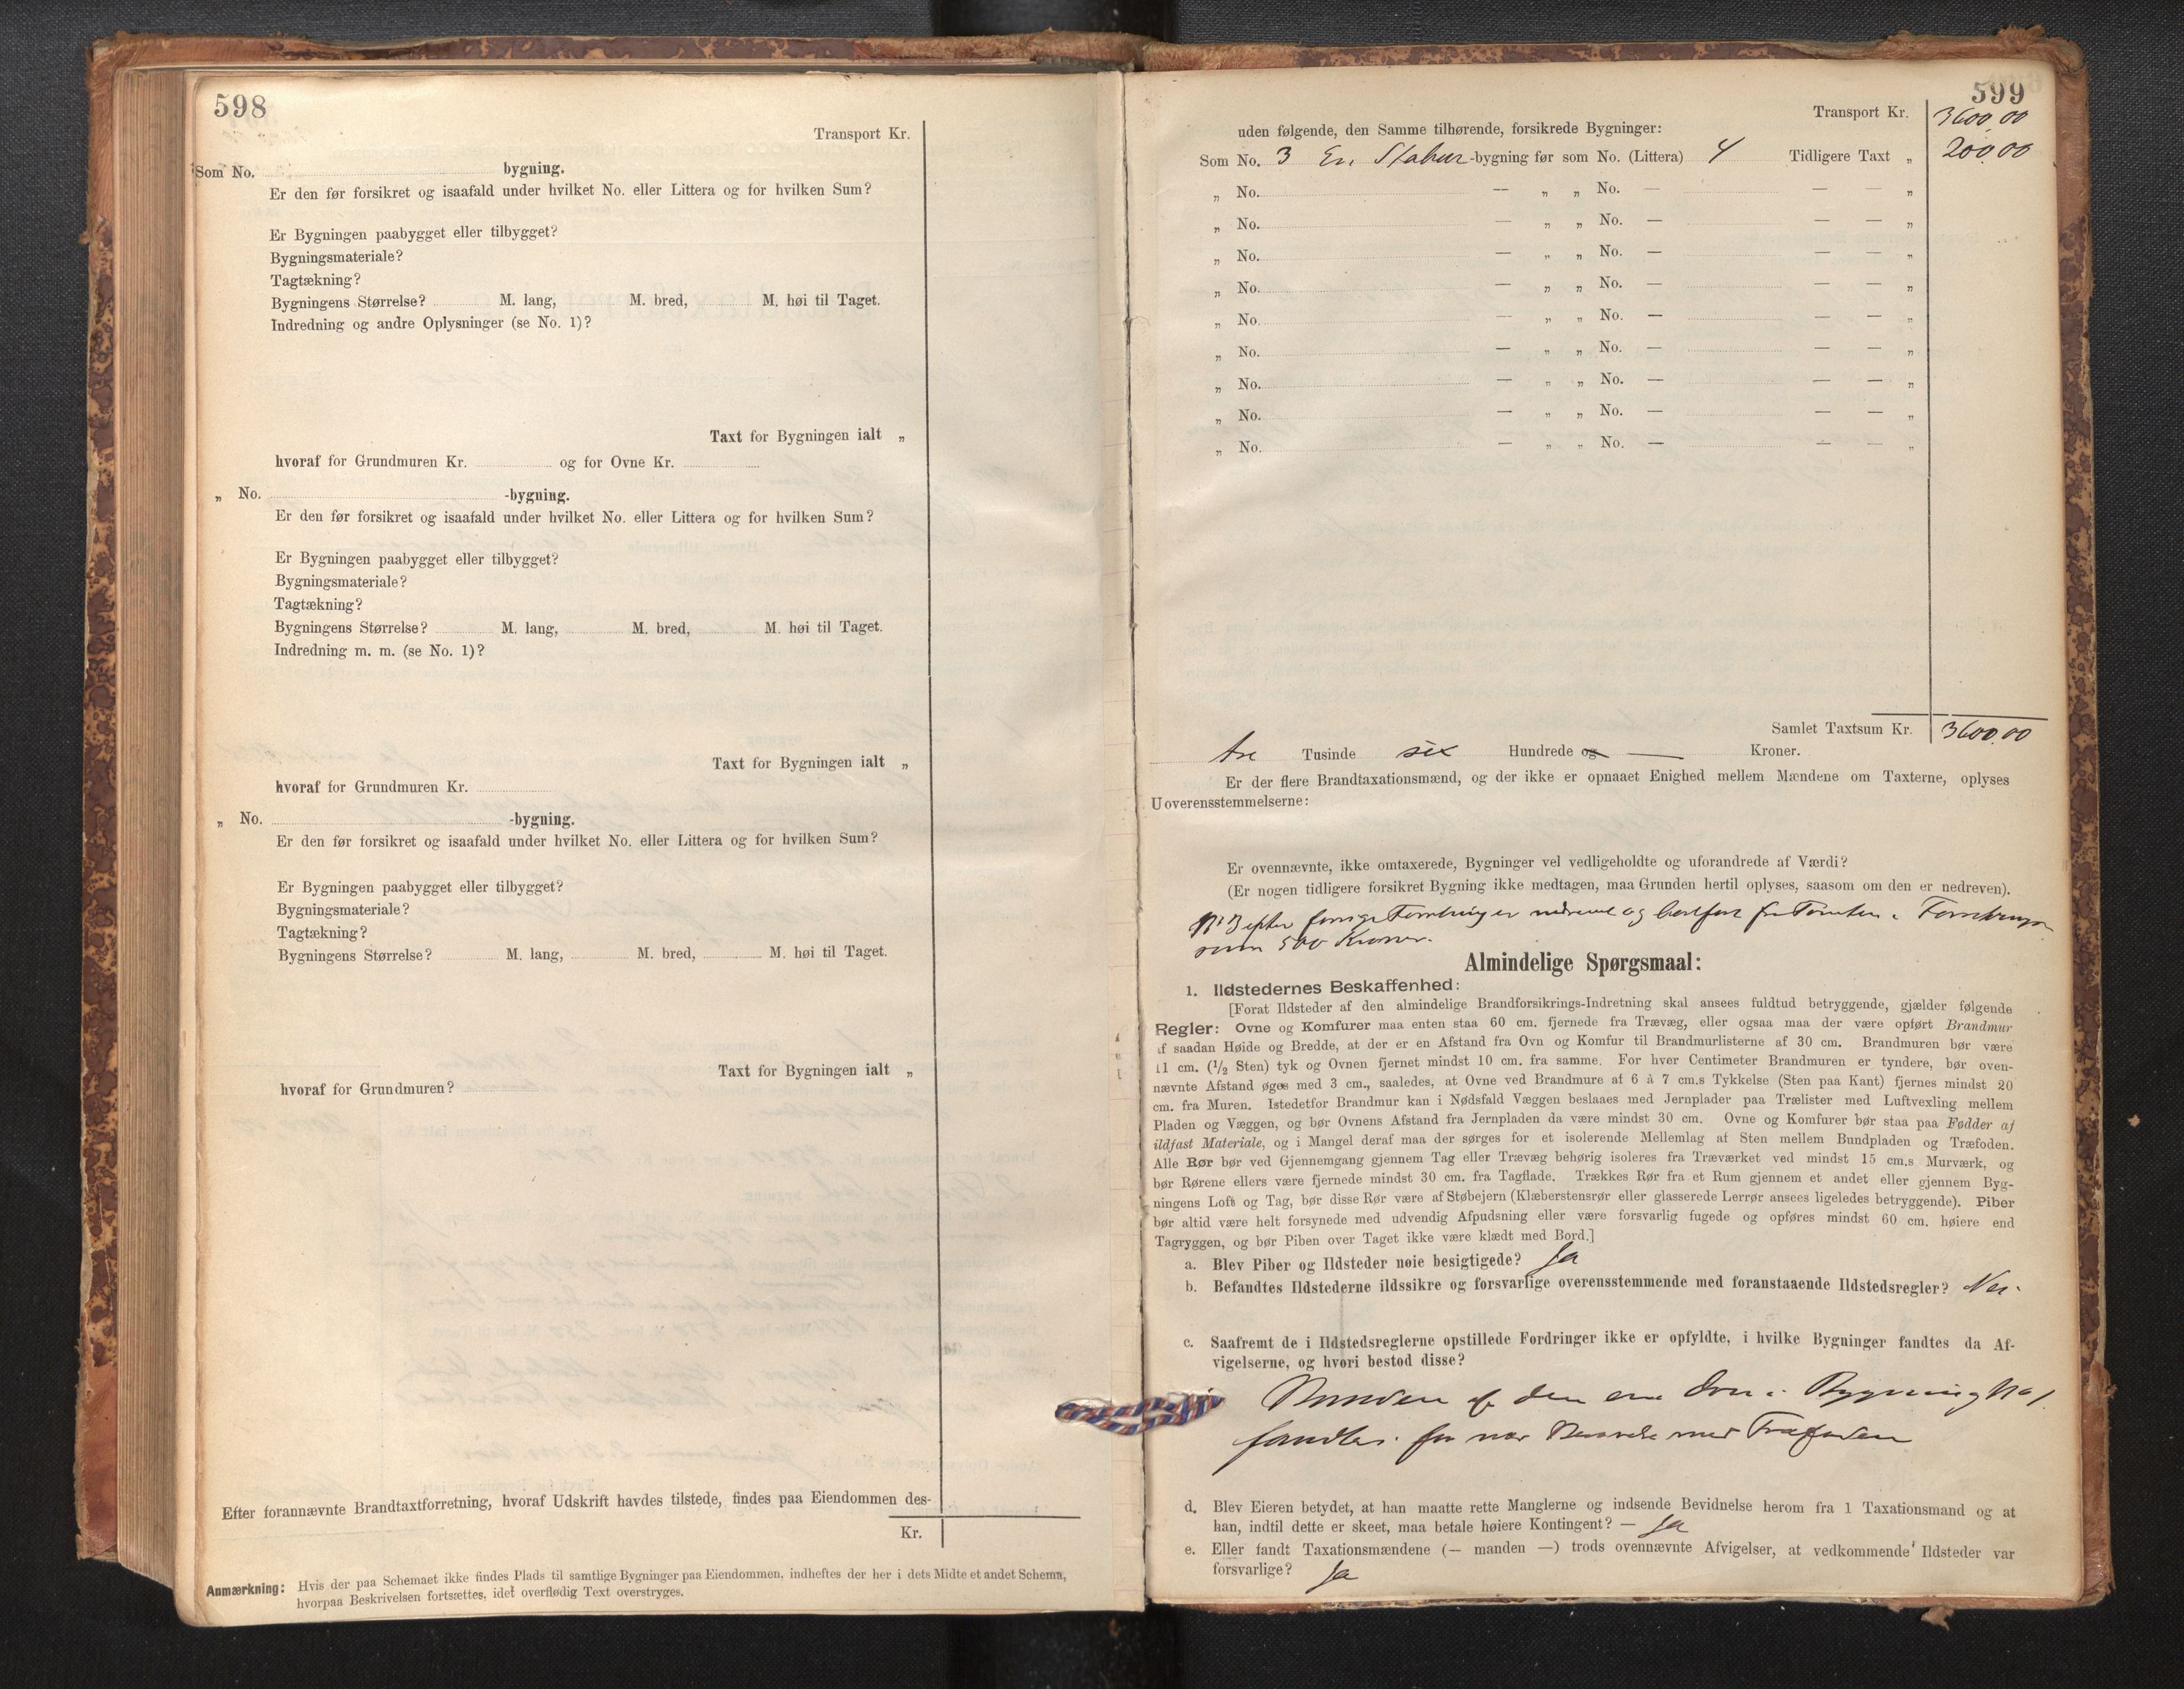 598
Transport Kr.
Som No. bygning.
Er den før forsikret og isaafald under hvilket No. eller Littera og for hvilken Sum?
Er Bygningen paabygget eller tilbygget?
Bygningsmateriale?
Tagtækning?
Bygningens Størrelse? M. lang, M. bred, M. høi til Taget.
Indredning og andre Oplysninger (se No. 1)?
Taxt for Bygningen ialt „
hvoraf for Grundmuren Kr. og for Ovne Kr.
„ No. -bygning.
Er den før forsikret og isaafald under hvilket No. eller Littera og for hvilken Sum?
Er Bygningen paabygget eller tilbygget?
Bygningsmateriale?
Tagtækning?
Bygningens Størrelse? M. lang, M. bred, M. høi til Taget.
Indredning m. m. (se No. 1)?
Taxt for Bygningen ialt „
hvoraf for Grundmuren Kr.
„ No. -bygning.
Er den før forsikret og isaafald under hvilket No. eller Littera og for hvilken Sum?
Er Bygningen paabygget eller tilbygget?
Bygningsmateriale?
Tagtækning?
Bygningens Størrelse? M. lang, M. bred, M. høi til Taget.
Taxt for Bygningen ialt „
hvoraf for Grundmuren?
Efter forannævnte Brandtaxtforretning, hvoraf Udskrift havdes tilstede, findes paa Eiendommen des-
Kr.
Anmærkning: Hvis der paa Schemaet ikke findes Plads til samtlige Bygninger paa Eiendommen, indheftes der her i dets Midte et andet Schema,
hvorpaa Beskrivelsen fortsættes, idet overflødig Text overstryges.
599
Transport Kr. 3600,00
uden følgende, den Samme tilhørende, forsikrede Bygninger:
Som No. 3 En Stabur -bygning før som No. (Littera) 4 Tidligere Taxt „ 200,00
„ No. — „ „ No. — — — „
„ No. — „ „ No. — — — „
„ No. — „ „ No. — — — „
„ No. — „ „ No. — — — „
„ No. — „ „ No. — — — „
„ No. — „ „ No. — — — „
„ No. — „ „ No. — — — „
„ No. — „ „ No. — — — „
„ No. — „ „ No. — — — „
Samlet Taxtsum Kr. 3600,00
tre Tusinde sex Hundrede og — Kroner.
Er der flere Brandtaxationsmænd, og der ikke er opnaaet Enighed mellem Mændene om Taxterne, oplyses
Uoverensstemmelserne:
Er ovennævnte, ikke omtaxerede, Bygninger vel vedligeholdte og uforandrede af Værdi?
(Er nogen tidligere forsikret Bygning ikke medtagen, maa Grunden hertil oplyses, saasom om den er nedreven).
No 3 efter forrige Forretning er nedrevet og bortført fra Tomten.
sum 500 Kroner.
Almindelige Spørgsmaal:
1. Ildstedernes Beskaffenhed:
[Forat Ildsteder af den almindelige Brandforsikrings-Indretning skal ansees fuldtud betryggende, gjælder følgende
Regler: Ovne og Komfurer maa enten staa 60 cm. fjernede fra Trævæg, eller ogsaa maa der være opført Brandmur
af saadan Høide og Bredde, at der er en Afstand fra Ovn og Komfur til Brandmurlisterne af 30 cm. Brandmuren bør være
11 cm. (1/2 Sten) tyk og Ovnen fjernet mindst 10 cm. fra samme. For hver Centimeter Brandmuren er tyndere, bør oven-
nævnte Afstand øges med 3 cm., saaledes, at Ovne ved Brandmure af 6 à 7 cm.s Tykkelse (Sten paa Kant) fjernes mindst 20
cm. fra Muren. Istedetfor Brandmur kan i Nødsfald Væggen beslaaes med Jernplader paa Trælister med Luftvexling mellem
Pladen og Væggen, og bør Ovnens Afstand fra Jernpladen da være mindst 30 cm. Ovne og Komfurer bør staa paa Fødder af
ildfast Materiale, og i Mangel deraf maa der sørges for et isolerende Mellemlag af Sten mellem Bundpladen og Træfoden.
Alle Rør bør ved Gjennemgang gjennem Tag eller Trævæg behørig isoleres fra Træværket ved mindst 15 cm.s Murværk, og
bør Rørene ellers være fjernede mindst 30 cm. fra Tagflade. Trækkes Rør fra et Rum gjennem et andet eller gjennem Byg-
ningens Loft og Tag, bør disse Rør være af Støbejern (Klæberstensrør eller glasserede Lerrør ansees ligeledes betryggende). Piber
bør altid være helt forsynede med udvendig Afpudsning eller være forsvarlig fugede og opføres mindst 60 cm. høiere end
Tagryggen, og bør Piben over Taget ikke være klædt med Bord.]
a. Blev Piber og Ildsteder nøie besigtigede? Ja
b. Befandtes Ildstederne ildssikre og forsvarlige overensstemmende med foranstaaende Ildstedsregler? Nei.
c. Saafremt de i Ildstedsreglerne opstillede Fordringer ikke er opfyldte, i hvilke Bygninger fandtes da Af-
vigelserne, og hvori bestod disse?
Bunden af den ene Ovn i Bygning No 1
fandtes for nær med Træfoden
d. Blev Eieren betydet, at han maatte rette Manglerne og indsende Bevidnelse herom fra 1 Taxationsmand og at
han, indtil dette er skeet, maa betale høiere Kontingent? — Ja
e. Eller fandt Taxationsmændene (— manden —) trods ovennævnte Afvigelser, at vedkommende Ildsteder var
forsvarlige? Ja